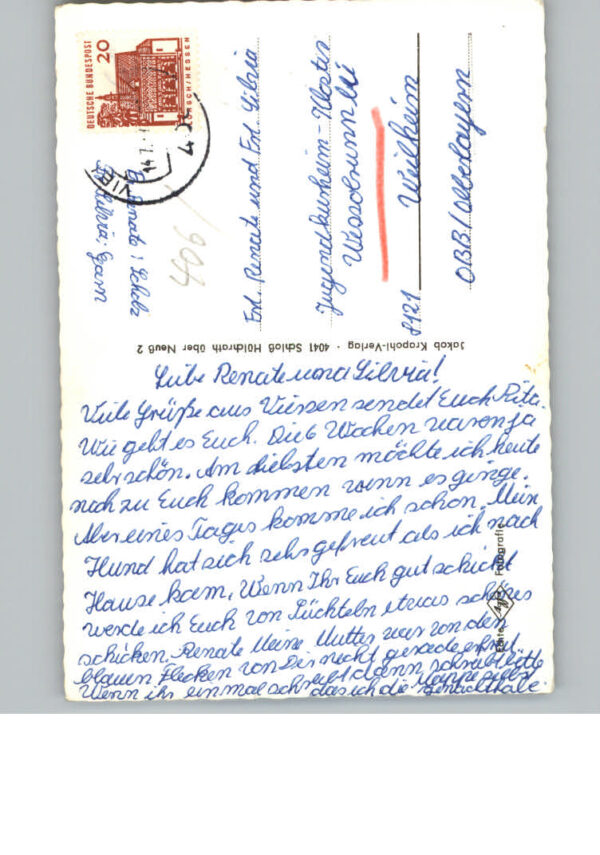 DEUTSCHE BUNDESPOST
20
LORSCH/HESSEN
VIE
14.7.
406
Renate Scholz
Silvia Garn
Frl. Renate und Frl. Silvia
Jugendkurheim-Kloster
Wessobrunn
8121 Weilheim
OBB/Oberbayern
Jakob Krapohl-Verlag · 4041 Schloß Hülchrath über Neuß 2
Echte Agfa Fotografie
Liebe Renate und Silvia!
Viele Grüße aus Viersen sendet Euch Rita.
Wie geht es Euch. Die 6 Wochen waren ja
sehr schön. Am liebsten möchte ich heute
noch zu Euch kommen wenn es ginge.
Aber eines Tages komme ich schon. Mein
Hund hat sich sehr gefreut als ich nach
Hause kam. Wenn Ihr Euch gut schickt
werde ich Euch von Süchteln etwas schönes
schicken. Renate Meine Mutter war von den
blauen Flecken von Dir nicht gerade erfreut
Wenn ihr einmal schreibt dann schreib bitte
das ich die Mappe